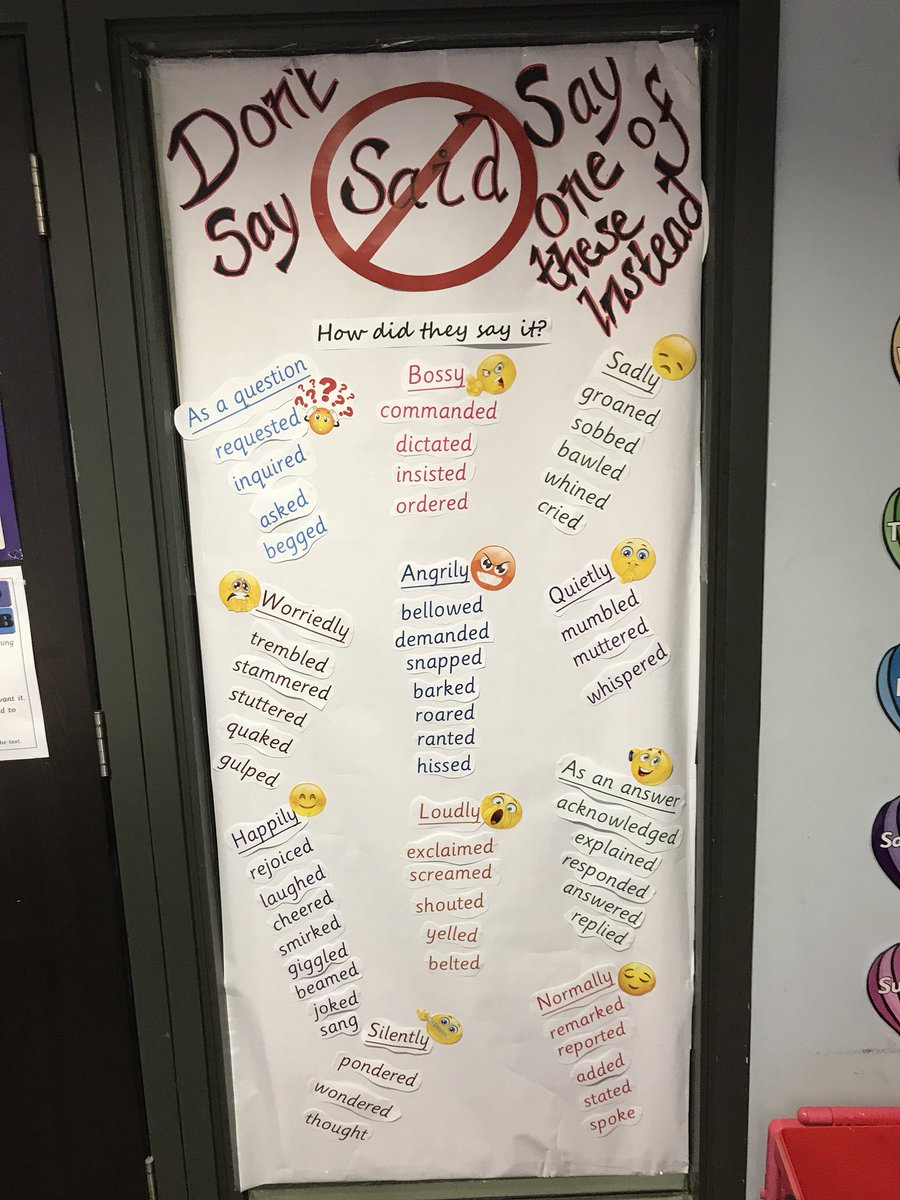 Don't
Say
Said
Say
one of
these
Instead
How did they say it?
As a question
requested
inquired
asked
begged
Bossy
commanded
dictated
insisted
ordered
Sadly
groaned
sobbed
bawled
whined
cried
Worriedly
trembled
stammered
stuttered
quaked
gulped
Angrily
bellowed
demanded
snapped
barked
roared
ranted
hissed
Quietly
mumbled
muttered
whispered
Happily
rejoiced
laughed
cheered
smirked
giggled
beamed
joked
sang
Loudly
exclaimed
screamed
shouted
yelled
belted
As an answer
acknowledged
explained
responded
answered
replied
Silently
pondered
wondered
thought
Normally
remarked
reported
added
stated
spoke
B
want it.
to
the text.